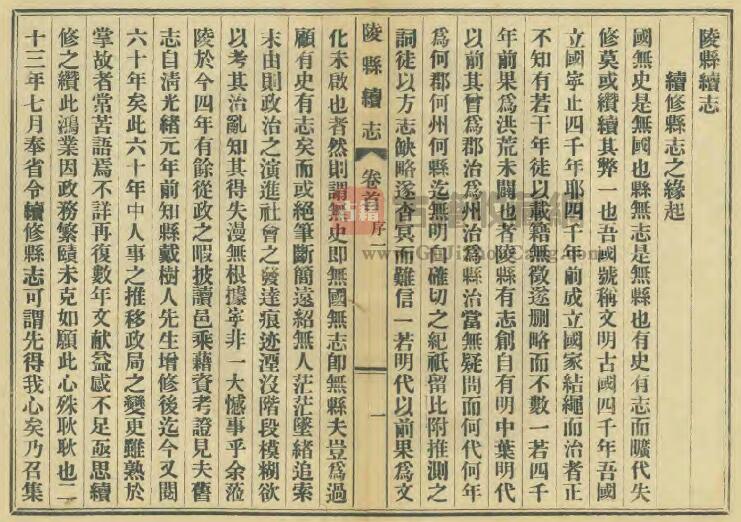 陵縣續志
續修縣志之緣起
國無史是無國也縣無志是無縣也有史有志而曠代失
修莫或纘續其弊一也吾國號稱文明古國四千年吾國
立國寧止四千年耶四千年前成立國家結繩而治者正
不知有若干年徒以載籍無徵遂删略而不數一若四千
年前果爲洪荒未闢也者陵縣有志創自有明中葉明代
以前其曾爲郡治爲州治爲縣治當無疑問而何代何年
爲何郡何州何縣迄無明白確切之紀祇留比附推測之
詞徒以方志缺略遂杳冥而難信一若明代以前果爲文
陵縣續志
卷首
序二
一
化未啟也者然則謂無史即無國無志卽無縣夫豈爲過
顧有史有志矣而或絕筆斷簡遠紹無人茫茫墜緒追索
末由則政治之演進社會之發達痕迹湮沒階段模糊欲
以考其治亂知其得失漫無根據寧非一大憾事乎余蒞
陵於今四年有餘從政之暇披讀邑乘藉資考證見夫舊
志自清光緒元年前知縣戴樹人先生增修後迄今又閱
六十年矣此六十年中人事之推移政局之變更雖熟於
掌故者常苦語焉不詳再復數年文献益感不足亟思續
修之纘此鴻業因政務繁賾未克如願此心殊耿耿也二
十三年七月奉省令續修縣志可謂先得我心矣乃召集